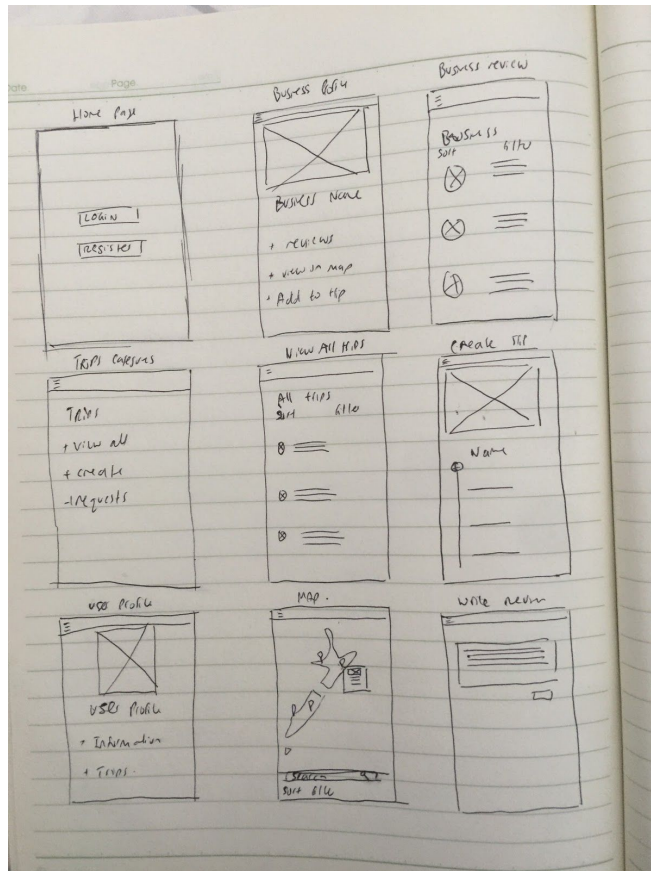 Date Page
Home Page
LOGIN
REGISTER
Business Profile
Business Name
+ reviews
+ view on map
+ Add to trip
Business review
Business
Sort filter
Trips
+ view all
+ create
requests
View All trips
All trips
Sort filter
Create Trip
Name
User Profile
User Profile
+ Information
+ Trips.
MAP.
Search
Sort filter
Write Review